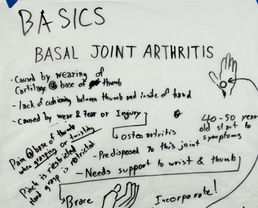 BASICS
BASAL JOINT ARTHRITIS
- Caused by wearing of
Cartilage @ base of thumb
- lack of cushioning between thumb and inside of hand
- Caused by wear & tear or Injury
Osteoartritis
40-50 year
old start to
symptoms
Pain @ base of thumb
when grasping or twisting
Pinch is restricted
and grasp is restricted
- Predisposed to this joint
- Needs support to wrist & thumb
Brace
Incorporate!